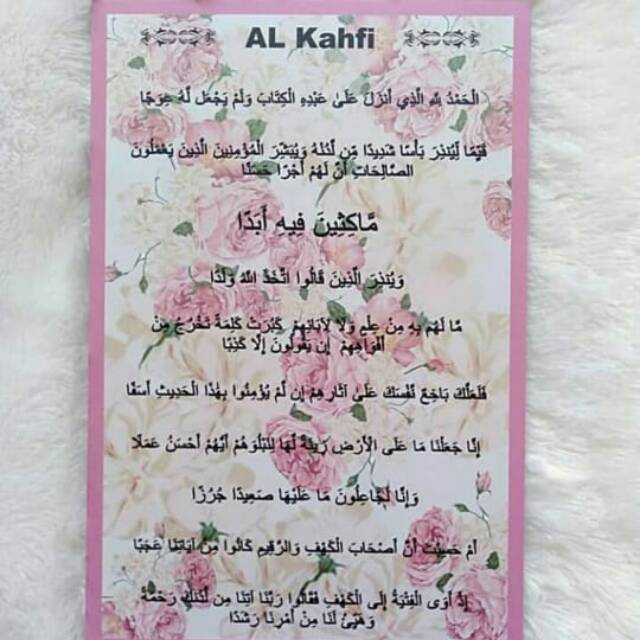 AL Kahfi
الْحَمْدُ لِلَّهِ الَّذِي أَنزَلَ عَلَىٰ عَبْدِهِ الْكِتَابَ وَلَمْ يَجْعَل لَّهُ عِوَجًا
قَيِّمًا لِّيُنذِرَ بَأْسًا شَدِيدًا مِّن لَّدُنْهُ وَيُبَشِّرَ الْمُؤْمِنِينَ الَّذِينَ يَعْمَلُونَ
الصَّالِحَاتِ أَنَّ لَهُمْ أَجْرًا حَسَنًا
مَّاكِثِينَ فِيهِ أَبَدًا
وَيُنذِرَ الَّذِينَ قَالُوا اتَّخَذَ اللَّهُ وَلَدًا
مَّا لَهُم بِهِ مِنْ عِلْمٍ وَلَا لِآبَائِهِمْ كَبُرَتْ كَلِمَةً تَخْرُجُ مِنْ
أَفْوَاهِهِمْ إِن يَقُولُونَ إِلَّا كَذِبًا
فَلَعَلَّكَ بَاخِعٌ نَّفْسَكَ عَلَىٰ آثَارِهِمْ إِن لَّمْ يُؤْمِنُوا بِهَٰذَا الْحَدِيثِ أَسَفًا
إِنَّا جَعَلْنَا مَا عَلَى الْأَرْضِ زِينَةً لَّهَا لِنَبْلُوَهُمْ أَيُّهُمْ أَحْسَنُ عَمَلًا
وَإِنَّا لَجَاعِلُونَ مَا عَلَيْهَا صَعِيدًا جُرُزًا
أَمْ حَسِبْتَ أَنَّ أَصْحَابَ الْكَهْفِ وَالرَّقِيمِ كَانُوا مِنْ آيَاتِنَا عَجَبًا
إِذْ أَوَى الْفِتْيَةُ إِلَى الْكَهْفِ فَقَالُوا رَبَّنَا آتِنَا مِن لَّدُنكَ رَحْمَةً
وَهَيِّئْ لَنَا مِنْ أَمْرِنَا رَشَدًا